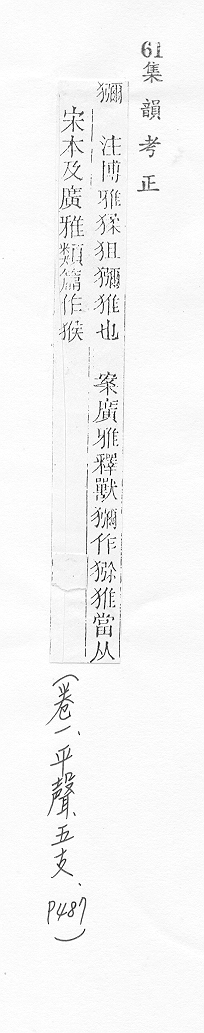 61集韻考正
獮　注博雅猱狙獮猚也　案廣雅釋獸獮作狝猚當从
宋本及廣雅類篇作猴
(卷一、平聲、五支、P487)